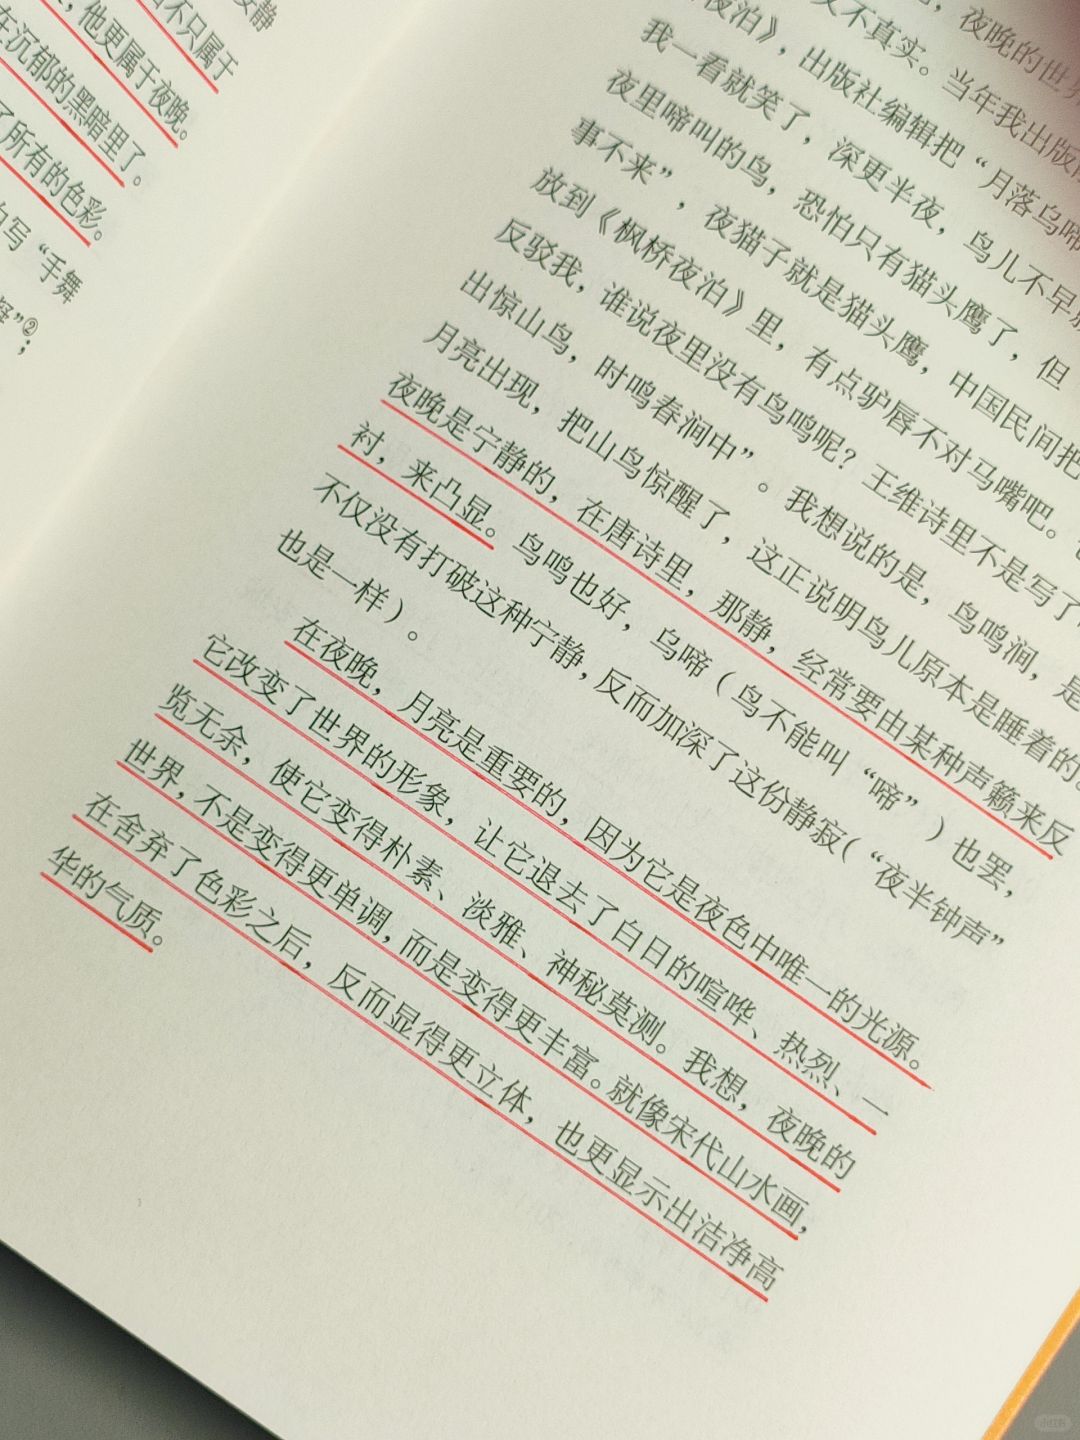 安静
不只属于
他更属于夜晚。
在沉郁的黑暗里了。
了所有的色彩。
写“手舞
”②；
夜晚的世界
又不真实。当年我出版
夜泊》，出版社编辑把“月落乌啼
我一看就笑了，深更半夜，鸟儿不早
夜里啼叫的鸟，恐怕只有猫头鹰了，但
事不来”，夜猫子就是猫头鹰，中国民间把
放到《枫桥夜泊》里，有点驴唇不对马嘴吧。
反驳我，谁说夜里没有鸟鸣呢？王维诗里不是写了
出惊山鸟，时鸣春涧中”。我想说的是，鸟鸣涧，是
月亮出现，把山鸟惊醒了，这正说明鸟儿原本是睡着的。
夜晚是宁静的，在唐诗里，那静，经常要由某种声籁来反
衬，来凸显。鸟鸣也好，乌啼（鸟不能叫“啼”）也罢，
不仅没有打破这种宁静，反而加深了这份静寂（“夜半钟声”
也是一样）。
在夜晚，月亮是重要的，因为它是夜色中唯一的光源。
它改变了世界的形象，让它退去了白日的喧哗、热烈、一
览无余，使它变得朴素、淡雅、神秘莫测。我想，夜晚的
世界，不是变得更单调，而是变得更丰富。就像宋代山水画，
在舍弃了色彩之后，反而显得更立体，也更显示出洁净高
华的气质。
小红书